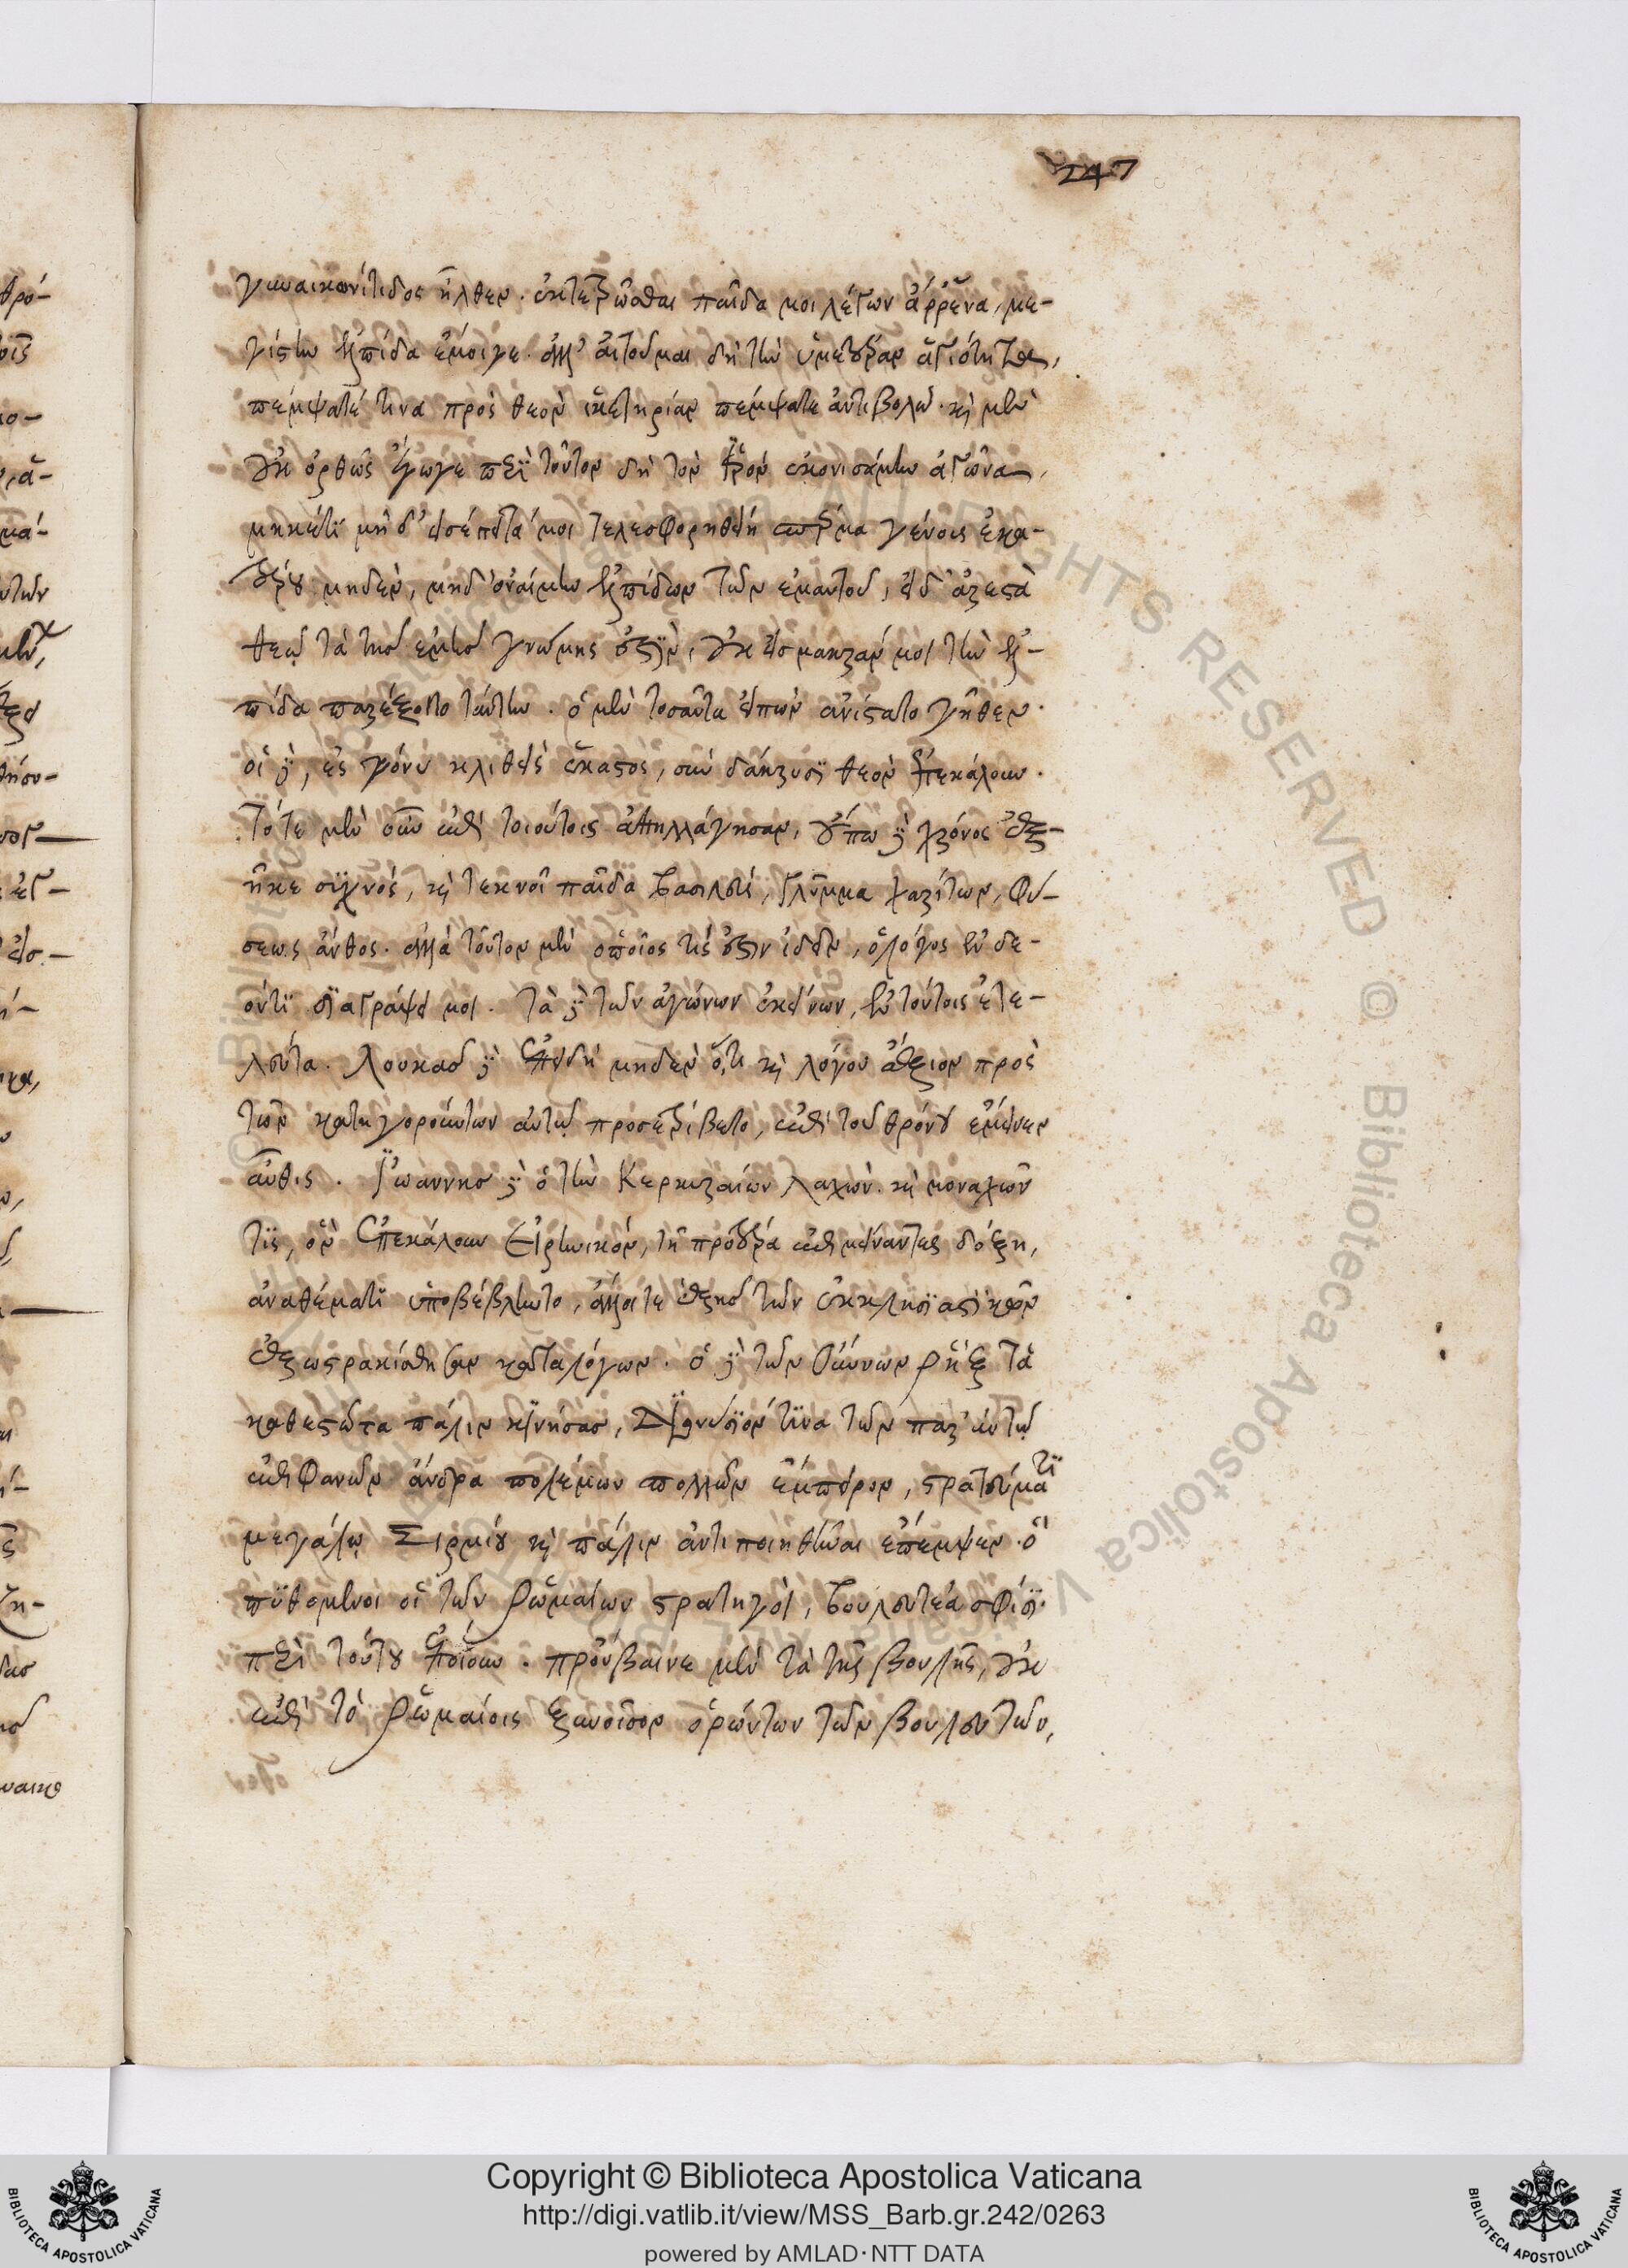 247
γυναικωνίτιδος ἧλθεν. ἐκτετρῶσθαι παῖδα μοι λέγων ἄῤῥενα, με-
γίστην ἐλπίδα ἐμοιγε. ἀλλ' αἰτοῦμαι δὴ τὴν ὑμετέραν ἁγιότητα,
πέμψατέ τινα πρὸς θεὸν ἱκετηρίαν πέμψατε ἀντιβολῶ. καὶ μὴν
οὐκ ὀρθῶς ἔγωγε περὶ τοῦτον δὴ τὸν ἱερὸν ἐκονισάμην ἀγῶνα,
μηκέτι μὴδ' εἰσέπειτά μοι τελεσφορηθείη σπέρμα γένοις ἑκα-
τέρου μηδὲν, μηδ' ὀναίμην ἐλπίδων τῶν ἐμαυτοῦ, εἰ δ' ἀρεστὰ
θεῷ τὰ τῆς ἐμῆς γνώμης ἐστὶν, οὐκ εἰς μακράν μοι τὴν ἐλ-
πίδα παρέξοιτο ταύτην. ὁ μὲν τοσαῦτα εἰπὼν ἀνίστατο γῆθεν.
οἱ δὲ, ἐς γόνυ κλιθεὶς ἕκαστος, σὺν δάκρυσι θεὸν ἐπεκάλουν.
Τότε μὲν οὖν ἐπὶ τοιούτοις ἀπηλλάγησαν, οὔπω δὲ χρόνος ἐξ-
ῆκε συχνὸς, καὶ τεκνοῖ παῖδα βασιλεὺς, γλύμμα χαρίτων, φύ-
σεως ἄνθος. ἀλλὰ τοῦτον μὲν ὁποῖος τίς ἐστιν ἰδεῖν, ὁ λόγος ἐν δε-
όντι διαγράψει μοι. τὰ δὲ τῶν ἀγώνων ἐκείνων, ἐν τούτοις ἐτε-
λεύτα. Λουκᾶς δὲ ἐπειδὴ μηδὲν ὅ,τι καὶ λόγου ἄξιον πρὸς
τῶν κατηγορούντων αὐτῷ προσετρίβετο, ἐπὶ τοῦ θρόνου ἔμεινεν
αὖθις. Ἰωάννης δὲ ὁ τὴν Κερκυραίων λαχὼν. καὶ μοναχῶν
τὶς, ὃν ἐπεκάλουν Εἰρηνικὸν, τῇ προτέρα ἐπιμείναντες δόξη,
ἀναθέματι ὑποβέβληντο, ἅλλοι τε ἐξ ἧς τῶν ἐκκλησιαστικῶν
ἐξωστρακίσθησαν καταλόγων. ὁ δὲ τῶν Οὔννων ῥὴξ τὰ
καθεστῶτα πάλιν κινήσας, Διονύσιόν τινα τῶν παρ' αὐτῷ
ἐπιφανῶν ἄνδρα πολέμων πολλῶν ἔμπειρον, στρατεύματι
μεγάλῳ Σιρμίου καὶ πάλιν ἀντιποιηθῆναι ἔπεμψεν. ὃ
πυθόμενοι οἱ τῶν Ῥωμαίων στρατηγοὶ, βουλευτέα σφίσι
περὶ τούτου ἐποίουν. προὔβαινε μὲν τὰ τῆς βουλῆς, οὐκ
ἐπὶ τὸ Ῥωμαίοις ξυνοῖσον ὁρώντων τῶν βουλευτῶν,
Copyright © Biblioteca Apostolica Vaticana
http://digi.vatlib.it/view/MSS_Barb.gr.242/0263
powered by AMLAD·NTT DATA